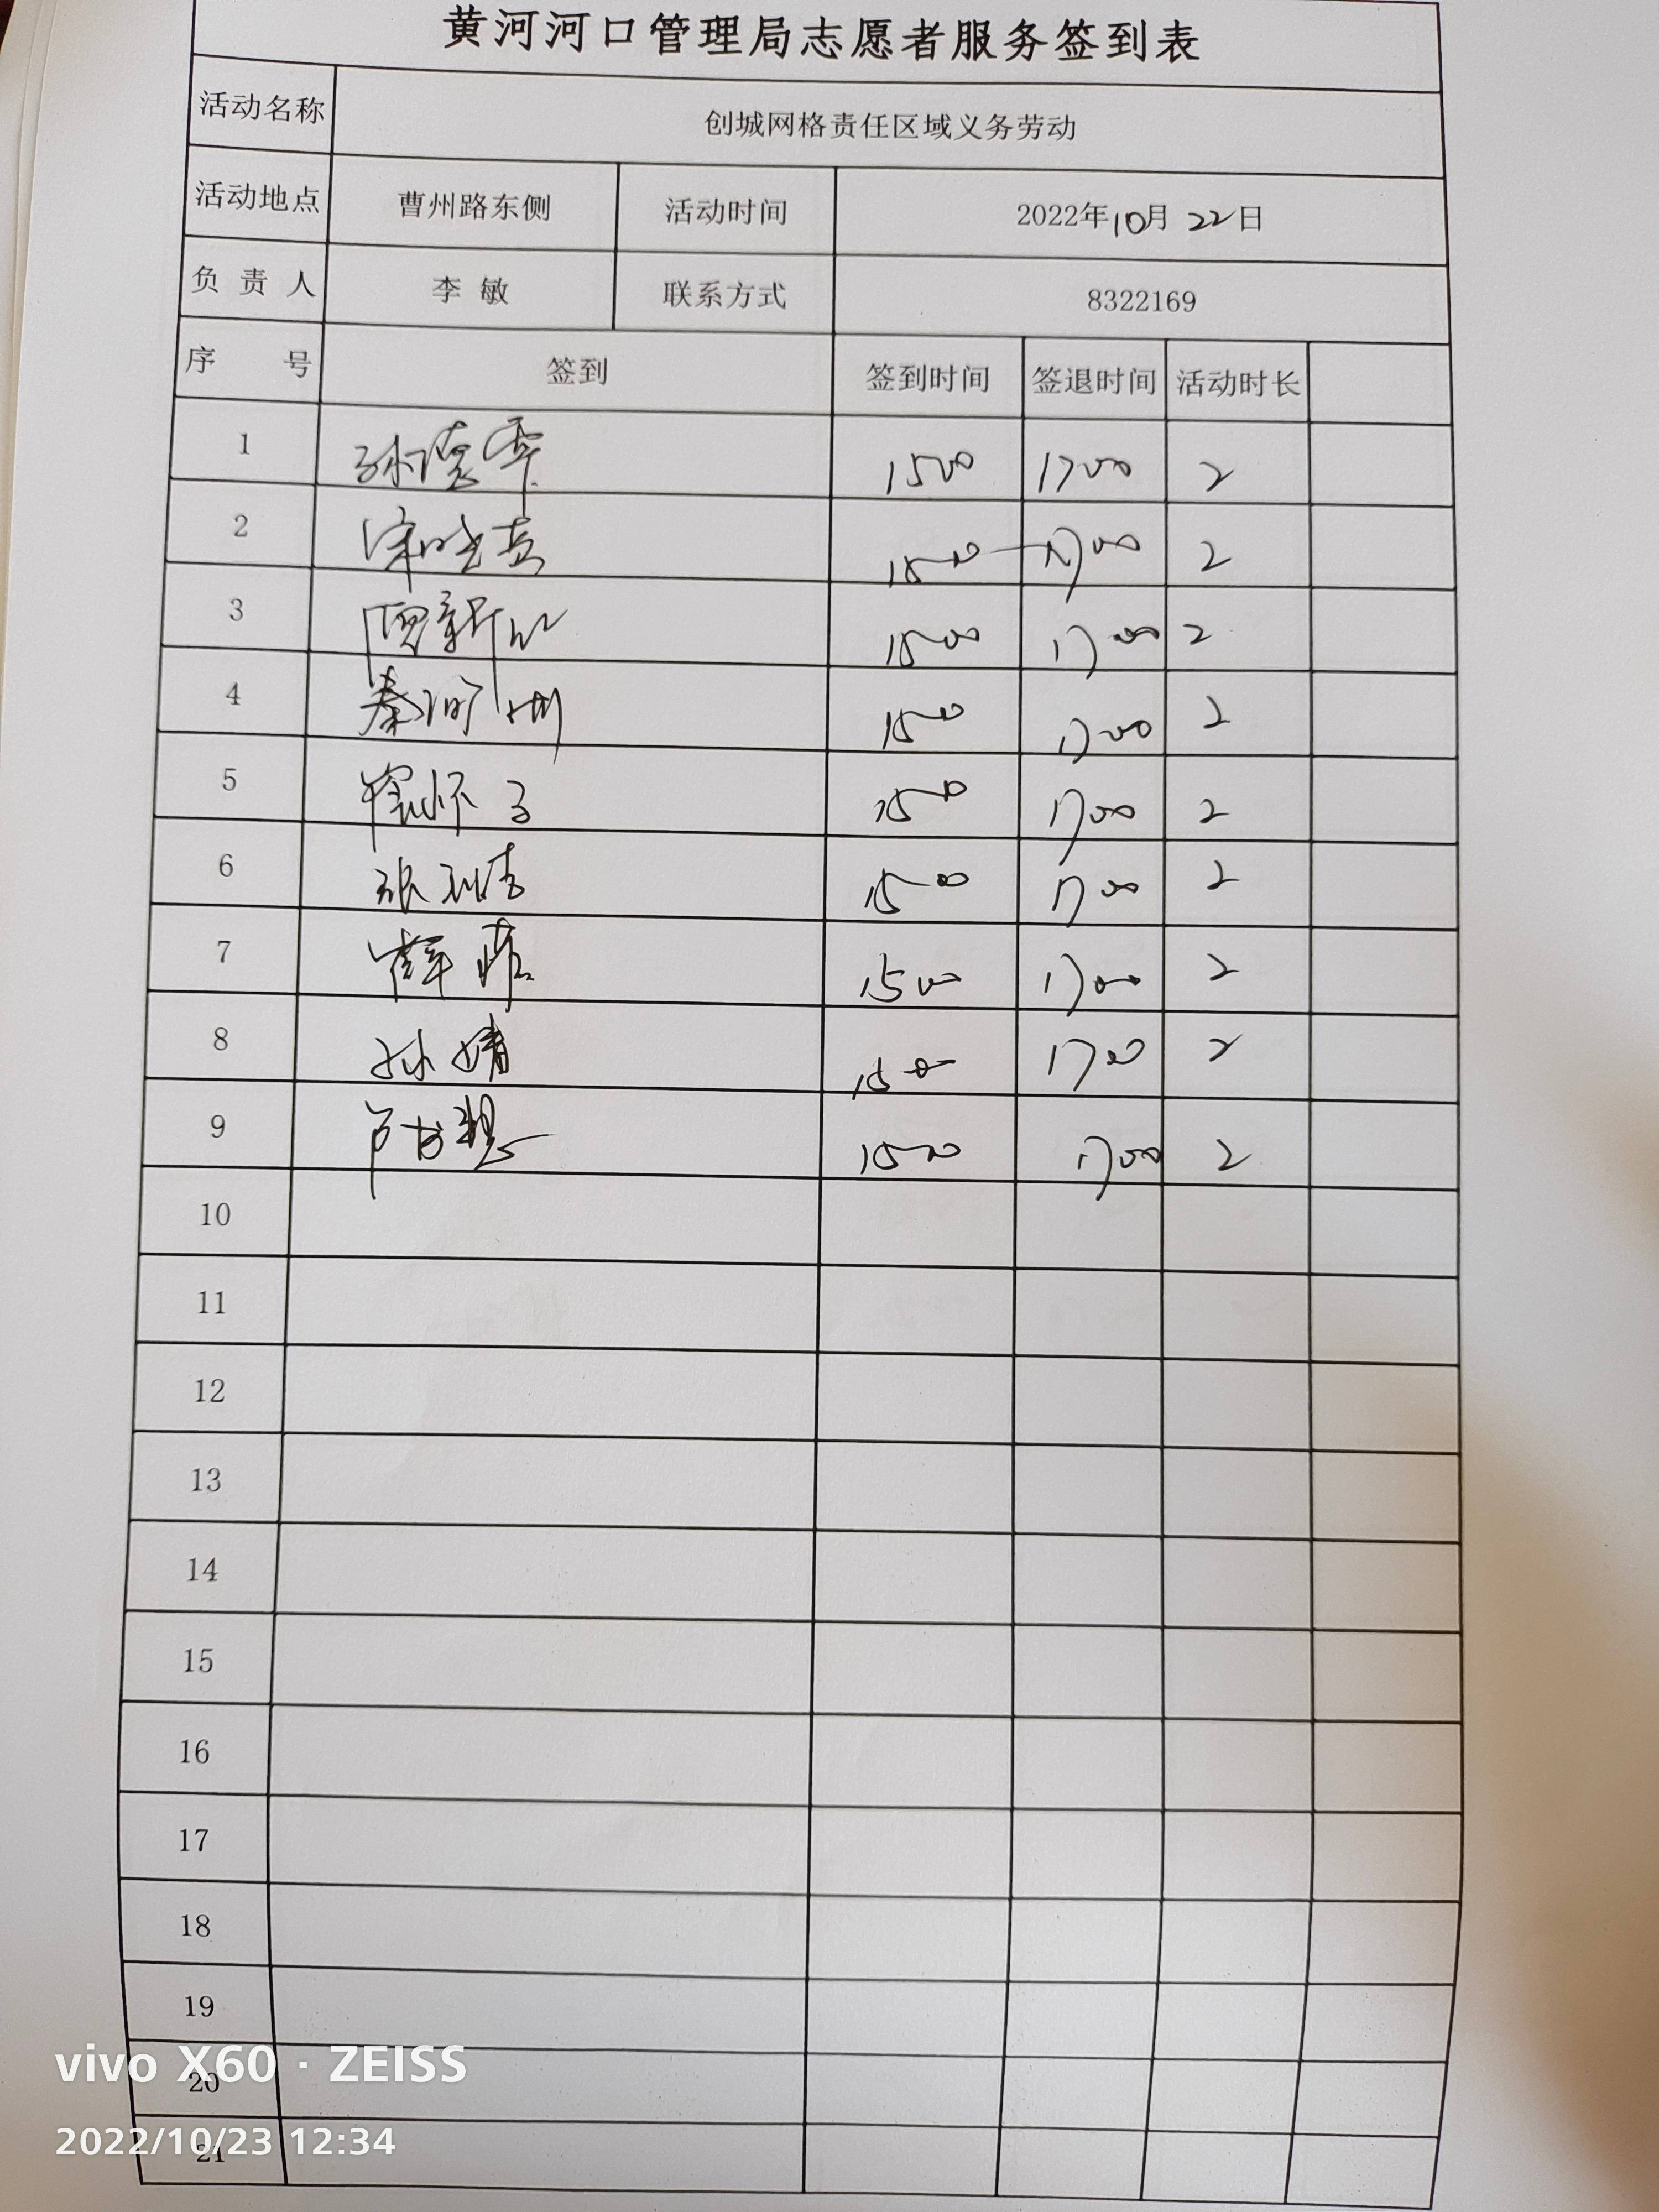 黄河河口管理局志愿者服务签到表
活动名称 创城网格责任区域义务劳动
活动地点 曹州路东侧 活动时间 2022年10月22日
负责人 李敏 联系方式 8322169
序号 签到 签到时间 签退时间 活动时长
1 1500 1700 2
2 1500 1700 2
3 1500 1700 2
4 1500 1700 2
5 1500 1700 2
6 1500 1700 2
7 1500 1700 2
8 孙婧 1500 1700 2
9 1500 1700 2
10
11
12
13
14
15
16
17
18
19
vivo X60 · ZEISS
20
2022/10/23 12:34
21